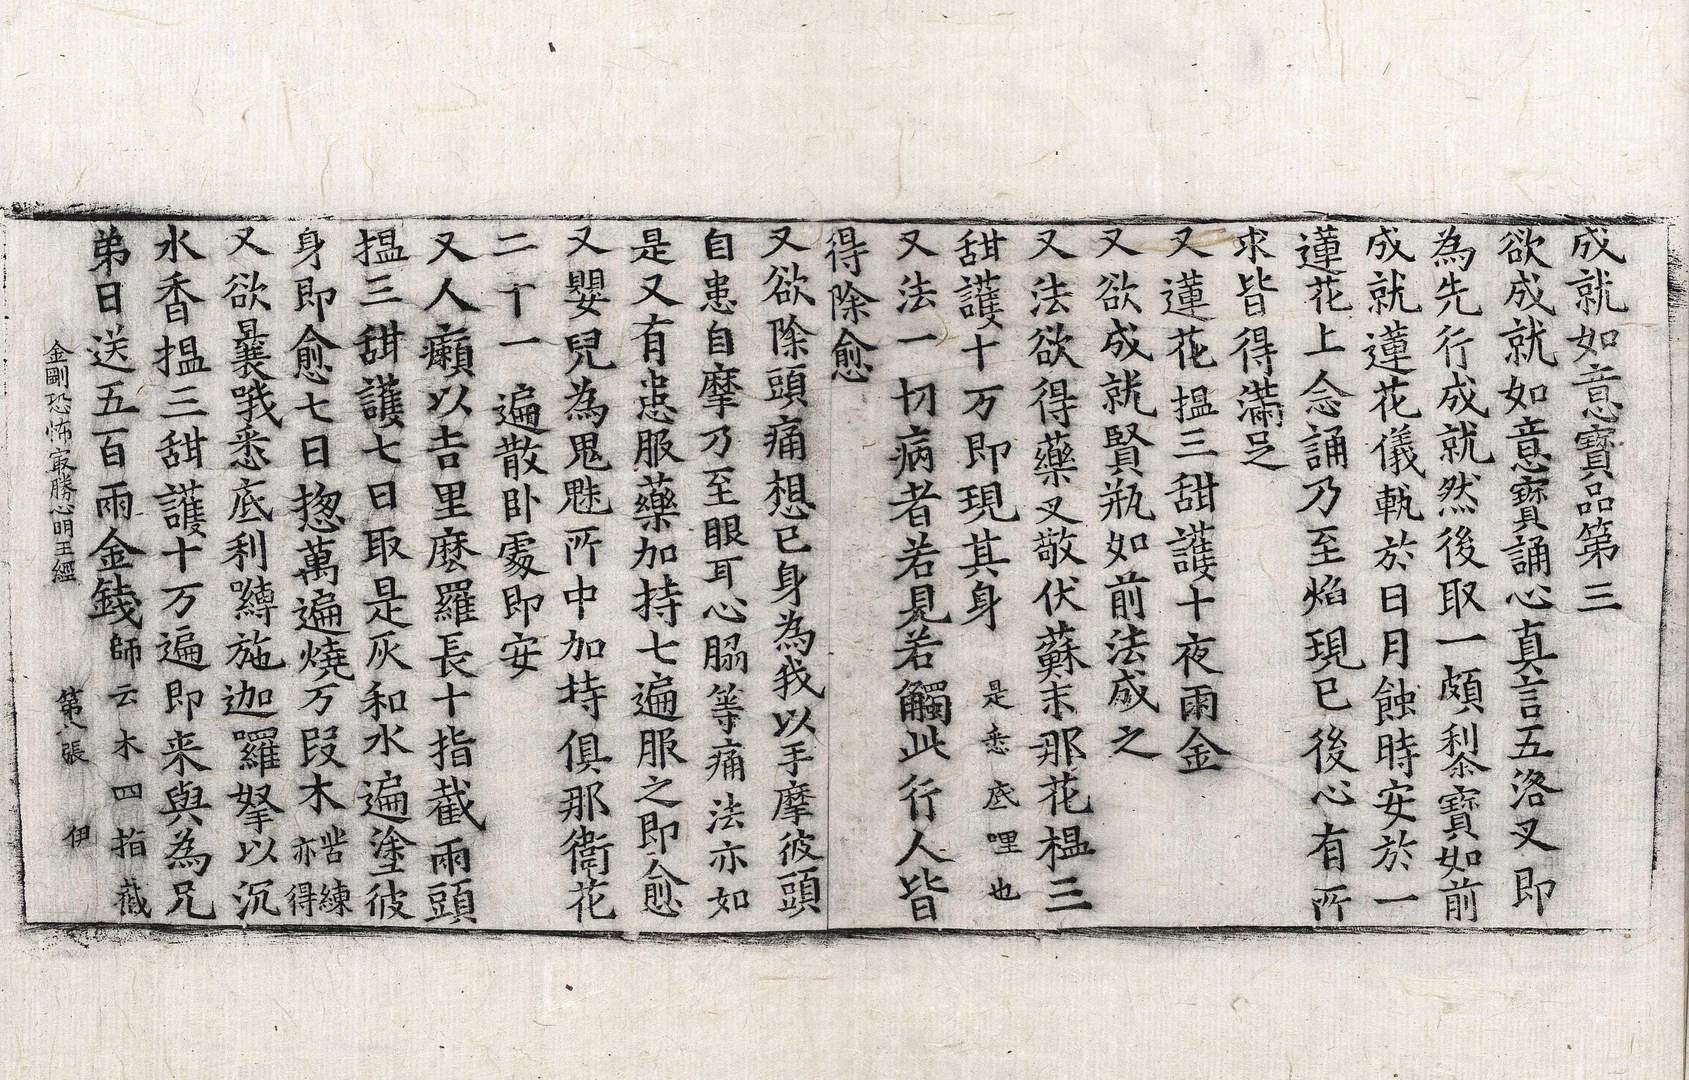 成就如意寶品第三
欲成就如意寶誦心真言五洛叉即
為先行成就然後取一頗梨寶如前
成就蓮花儀軌於日月蝕時安於一
蓮花上念誦乃至焰現已後心有所
求皆得滿足
又蓮花搵三甜護十夜雨金
又欲成就賢瓶如前法成之
又法欲得藥叉敬伏蘇末那花榅三
甜護十万即現其身 是悉底哩也
又法一切病者若見若觸此行人皆
得除愈
又欲除頭痛想己身為我以手摩彼頭
自患自摩乃至眼耳心脇等痛法亦如
是又有患服藥加持七遍服之即愈
又嬰兒為鬼魅所中加持俱那衞花
二十一遍散卧處即安
又人癲以吉里麼羅長十指截兩頭
搵三甜護七日取是灰和水遍塗彼
身即愈七日揔萬遍燒万段木 苦練亦得
又欲曩哦悉底利嚩施迦囉拏以沉
水香搵三甜護十万遍即来與為兄
弟日送五百兩金錢 師云木四指截
金剛恐怖㝡勝心明王經 第八張 伊